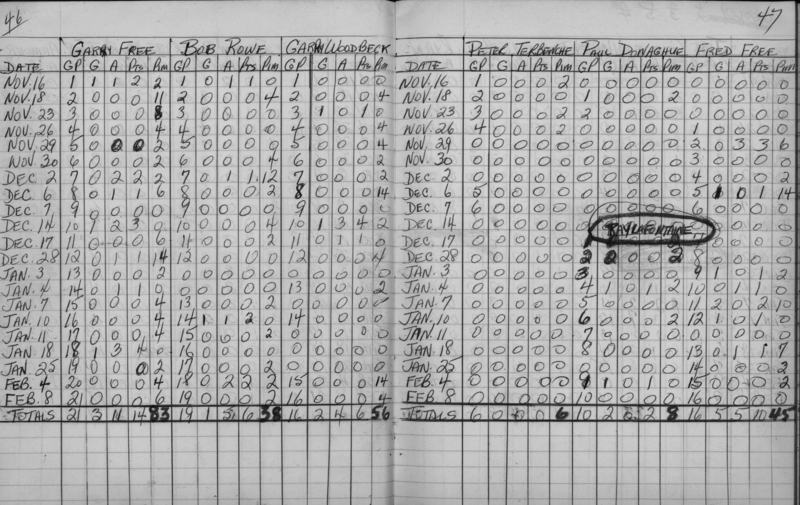 46
GARRY FREE BOB ROWE GARRY WOODBECK
DATE GP G A Pts Pim GP G A Pts Pim GP G A Pts Pim
NOV. 16 1 1 1 2 2 1 0 1 1 0 1 0 0 0 0
NOV. 18 2 0 0 0 11 2 0 0 0 4 2 0 0 0 4
NOV. 23 3 0 0 0 8 3 0 0 0 0 3 1 0 1 0
NOV. 26 4 0 0 0 4 4 0 0 0 0 4 0 0 0 4
NOV. 29 5 0 0 0 2 5 0 0 0 0 5 0 0 0 4
NOV. 30 6 0 0 0 2 6 0 0 0 4 6 0 0 0 2
DEC. 2 7 0 2 2 2 7 0 1 1 12 7 0 0 0 2
DEC. 6 8 0 1 1 6 8 0 0 0 2 8 0 0 0 14
DEC. 7 9 0 0 0 0 9 0 0 0 0 9 0 0 0 0
DEC. 14 10 1 2 3 0 10 0 0 0 4 10 1 3 4 2
DEC. 17 11 0 0 0 6 11 0 0 0 2 11 0 1 1 0
DEC. 28 12 0 1 1 14 12 0 0 0 0 12 0 0 0 4
JAN. 3 13 0 0 0 2 0 0 0 0 0 0 0 0 0 0
JAN. 4 14 0 1 1 0 0 0 0 0 0 13 0 0 0 2
JAN. 7 15 0 0 0 4 13 0 0 0 2 0 0 0 0
JAN. 10 16 0 0 0 4 14 1 1 2 0 14 0 0 0 0
JAN. 11 17 0 0 0 4 15 0 0 0 2 0 0 0 0 0
JAN. 18 18 1 3 4 0 16 0 0 0 0 0 0 0 0 0
JAN. 25 19 0 0 0 2 17 0 0 0 2 0 0 0 0 0
FEB. 4 20 0 0 0 4 18 0 2 2 2 15 0 0 0 14
FEB. 8 21 0 0 0 6 19 0 0 0 2 16 0 0 0 4
TOTALS 21 3 11 14 83 19 1 5 6 38 16 2 4 6 56
47
PETER PAUL DONAGHUE FRED FREE
DATE GP G A Pts Pim GP G A Pts Pim GP G A Pts Pim
NOV. 16 1 0 0 0 2 0 0 0 0 0 0 0 0 0 0
NOV. 18 2 0 0 0 0 1 0 0 0 2 0 0 0 0 0
NOV. 23 3 0 0 0 2 0 0 0 0 0 0 0 0 0 0
NOV. 26 4 0 0 0 2 0 0 0 0 0 1 0 0 0 0
NOV. 29 0 0 0 0 0 0 0 0 0 0 2 0 3 3 6
NOV. 30 0 0 0 0 0 0 0 0 0 0 3 0 0 0 0
DEC. 2 0 0 0 0 0 0 0 0 0 0 4 0 0 0 2
DEC. 6 5 0 0 0 0 0 0 0 0 0 5 1 0 1 14
DEC. 7 6 0 0 0 0 0 0 0 0 0 6 0 0 0 0
DEC. 14 0 0 0 0 0 RAY LAFONTAINE 0 0 0 0
DEC. 17 0 0 0 0 0 0 0 0 0
DEC. 28 0 0 0 0 0 2 2 0 2 8 0 0 0 0
JAN. 3 0 0 0 0 0 3 0 0 0 0 9 1 0 1 2
JAN. 4 0 0 0 0 0 4 1 0 1 2 10 1 0 1 0
JAN. 7 0 0 0 0 0 5 0 0 0 0 11 2 0 2 10
JAN. 10 0 0 0 0 0 6 0 0 0 2 12 1 0 1 0
JAN. 11 0 0 0 0 0 7 0 0 0 0 0 0 0 0 0
JAN. 18 0 0 0 0 0 8 0 0 0 0 13 0 1 1 7
JAN. 25 0 0 0 0 0 0 0 0 0 0 14 0 0 0 2
FEB. 4 0 0 0 0 0 9 1 0 1 0 15 0 0 0 2
FEB. 8 0 0 0 0 0 10 0 0 0 0 16 0 0 0 0
TOTALS 6 0 0 0 6 10 2 0 2 8 16 5 5 10 45